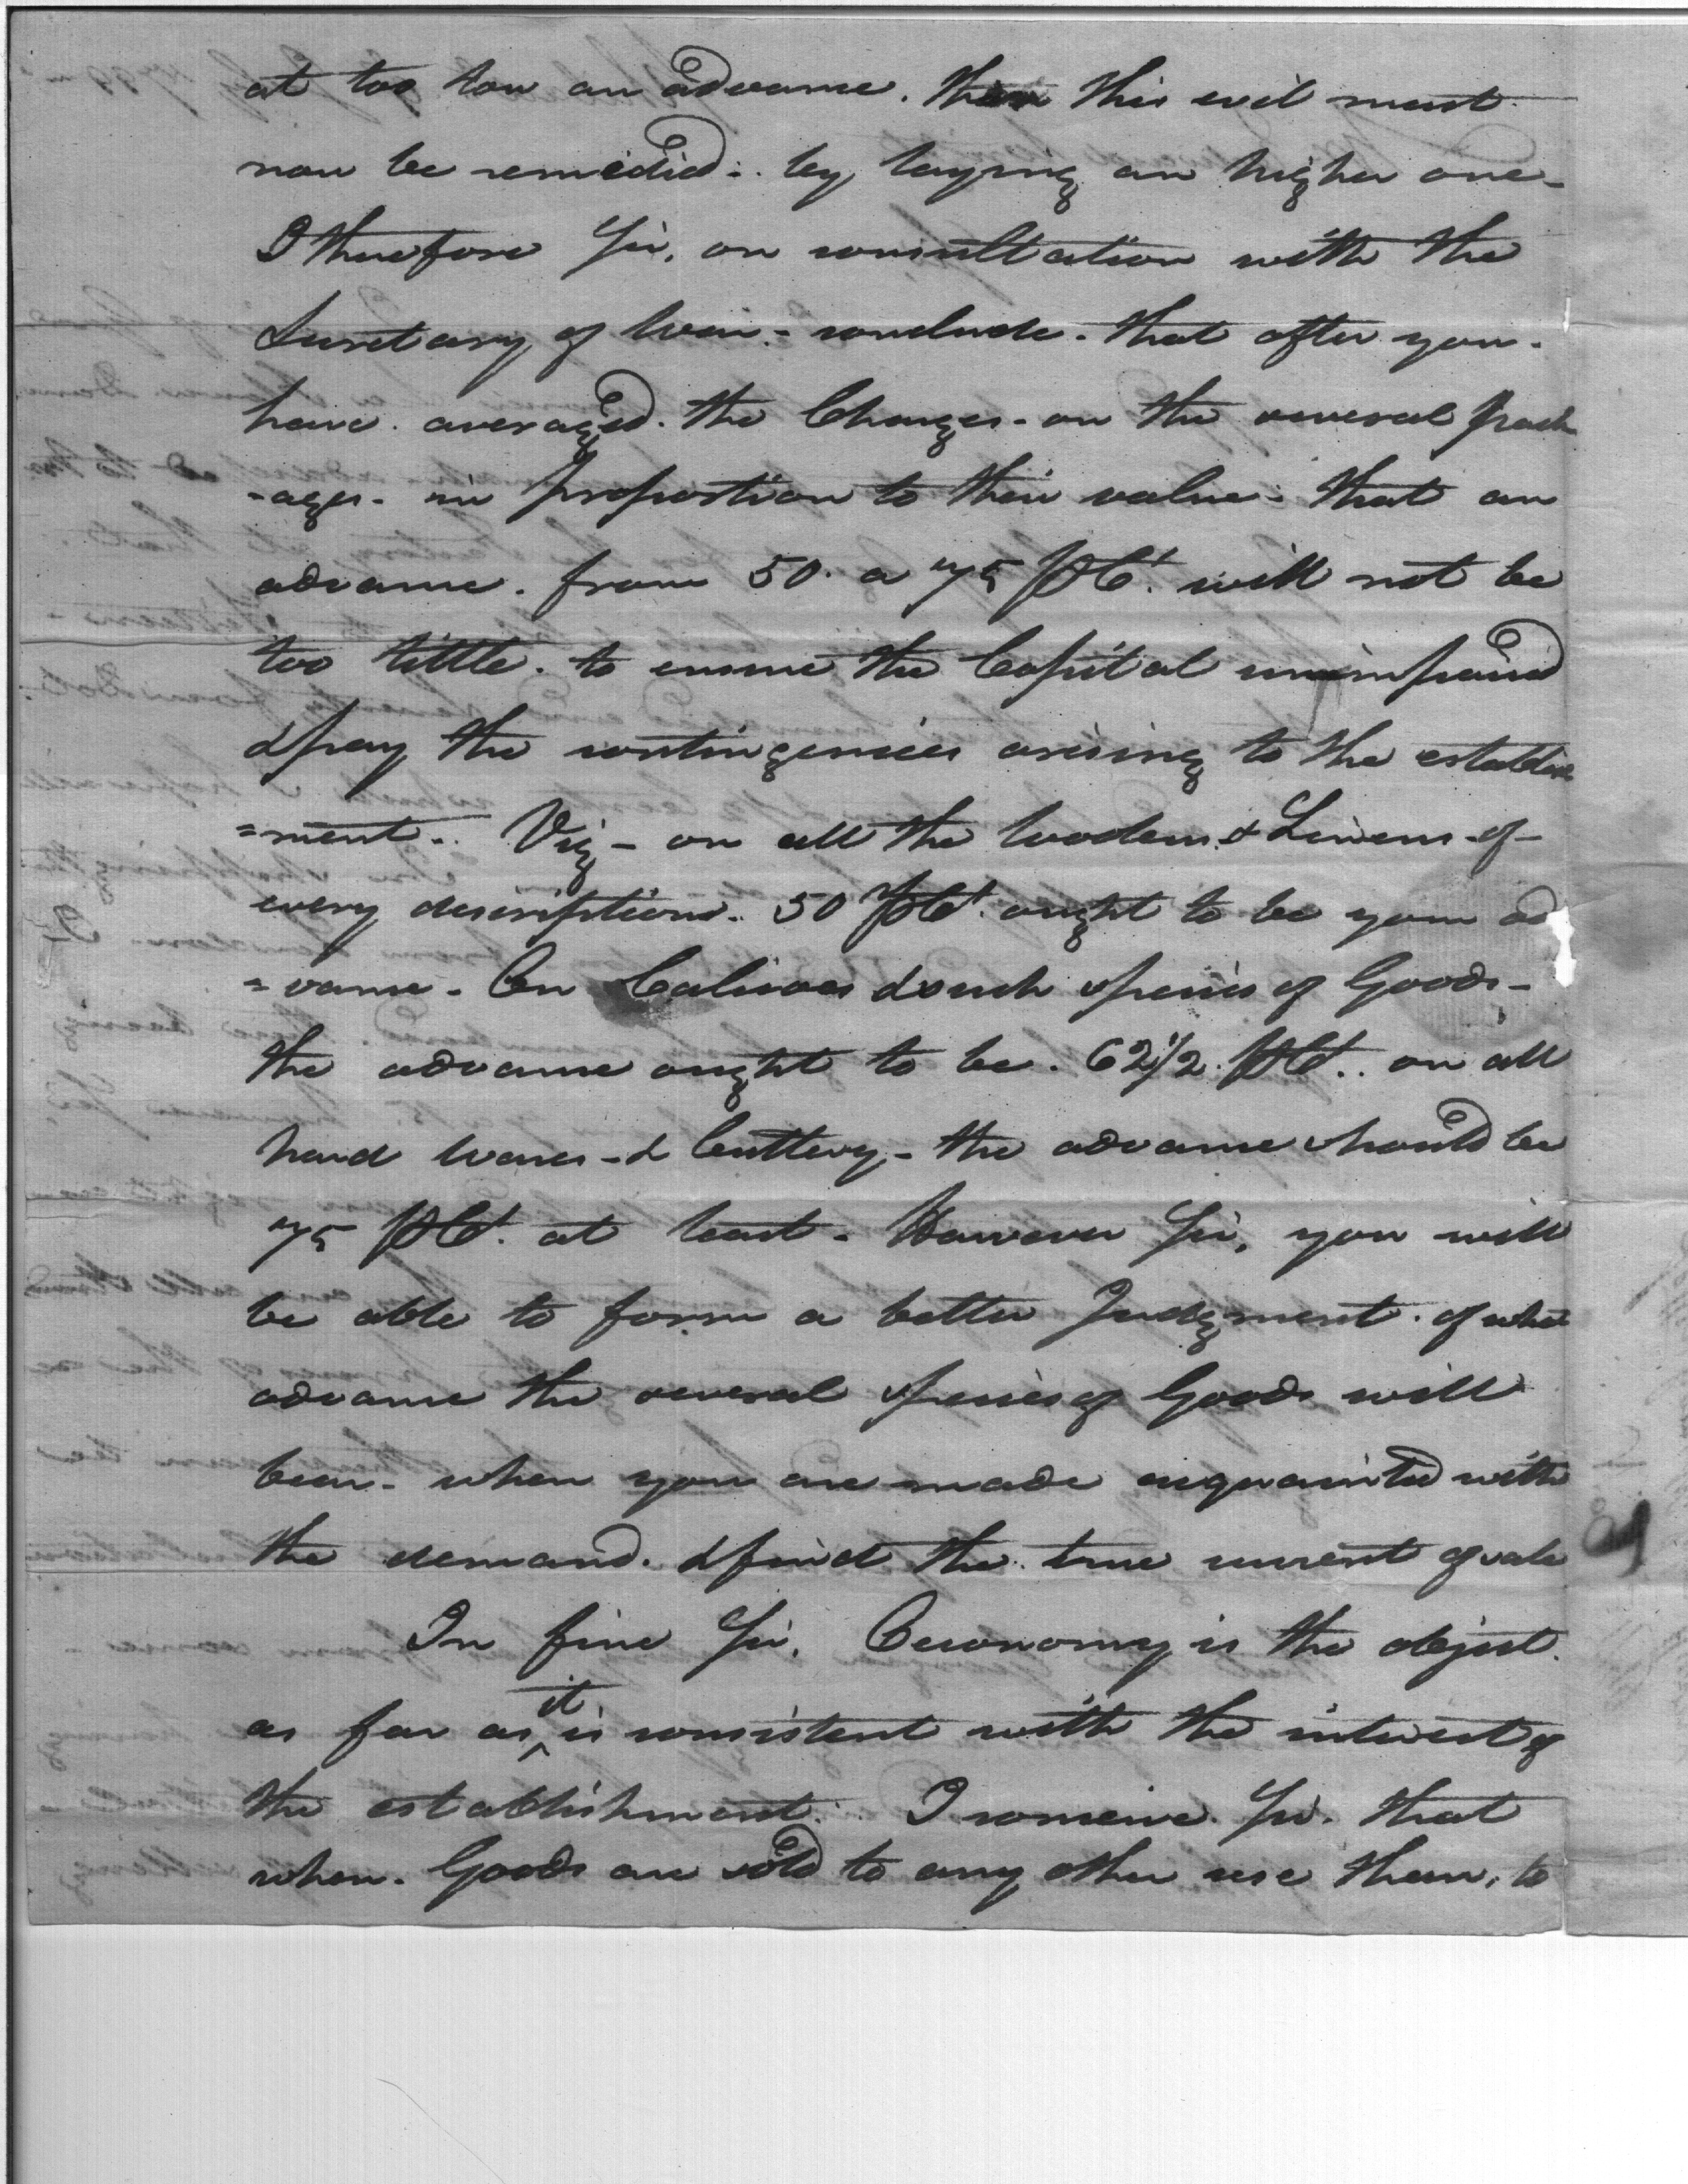 at too low an advance. then this evil must
now be remedied: by laying an higher one-
I therefore Sir, on consultation with the
Secretary of War - conclude. that after you.
have. averaged. the Charges - on the several pack
-ages - in proportion to their value - that an
advance. from 50. a 75 PCt. will not be
too little. to ensure the Capital unimpaired
& pay the contingencies arising to the establish
=ment.. Viz - on all the Woolens & Linens - of -
every description. 50 PCt. ought to be your ad
=vance - On Calicoes & such species of Goods -
the advance ought to be. 62 1/2 PCt.. on all
hard Wares - & Cuttlery, - the advance should be
75 PCt. at least - However Sir, you will
be able to form a better Judgment. of what
advance the several species of Goods will
bear - when you are made acquainted with
the demand. & find the true current of sale
In fine Sir, Oeconomy is the object.
as far as it is consistent with the interest of
the establishment. I conceive. Sir. that
when. Goods are sold to any other use than, to